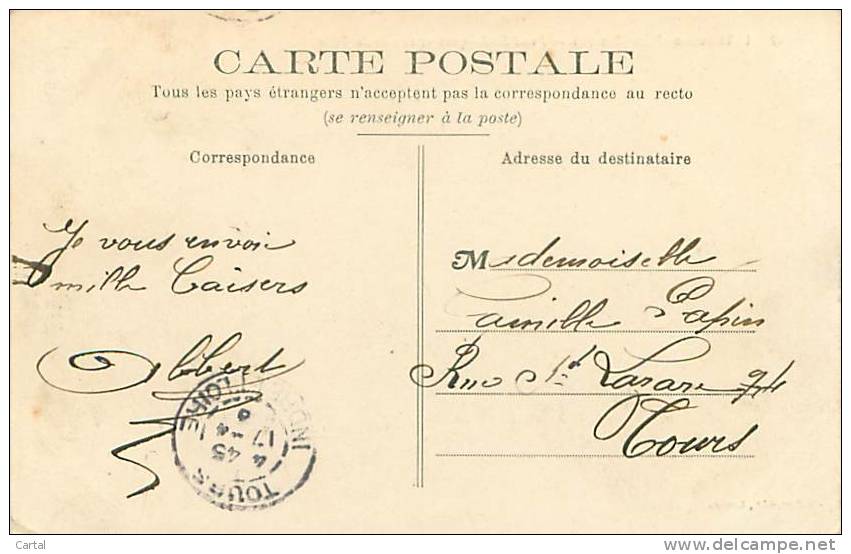 CARTE POSTALE
Tous les pays étrangers n'acceptent pas la correspondance au recto
(se renseigner à la poste)
Correspondance
Adresse du destinataire
Je vous envoie
mille baisers
Albert
Mademoiselle
Camille Papin
Rue St Lazare 94
Tours
TOURS
INDRE
LOIRE
4 45
17 - 4
Cartal
www.delcampe.net